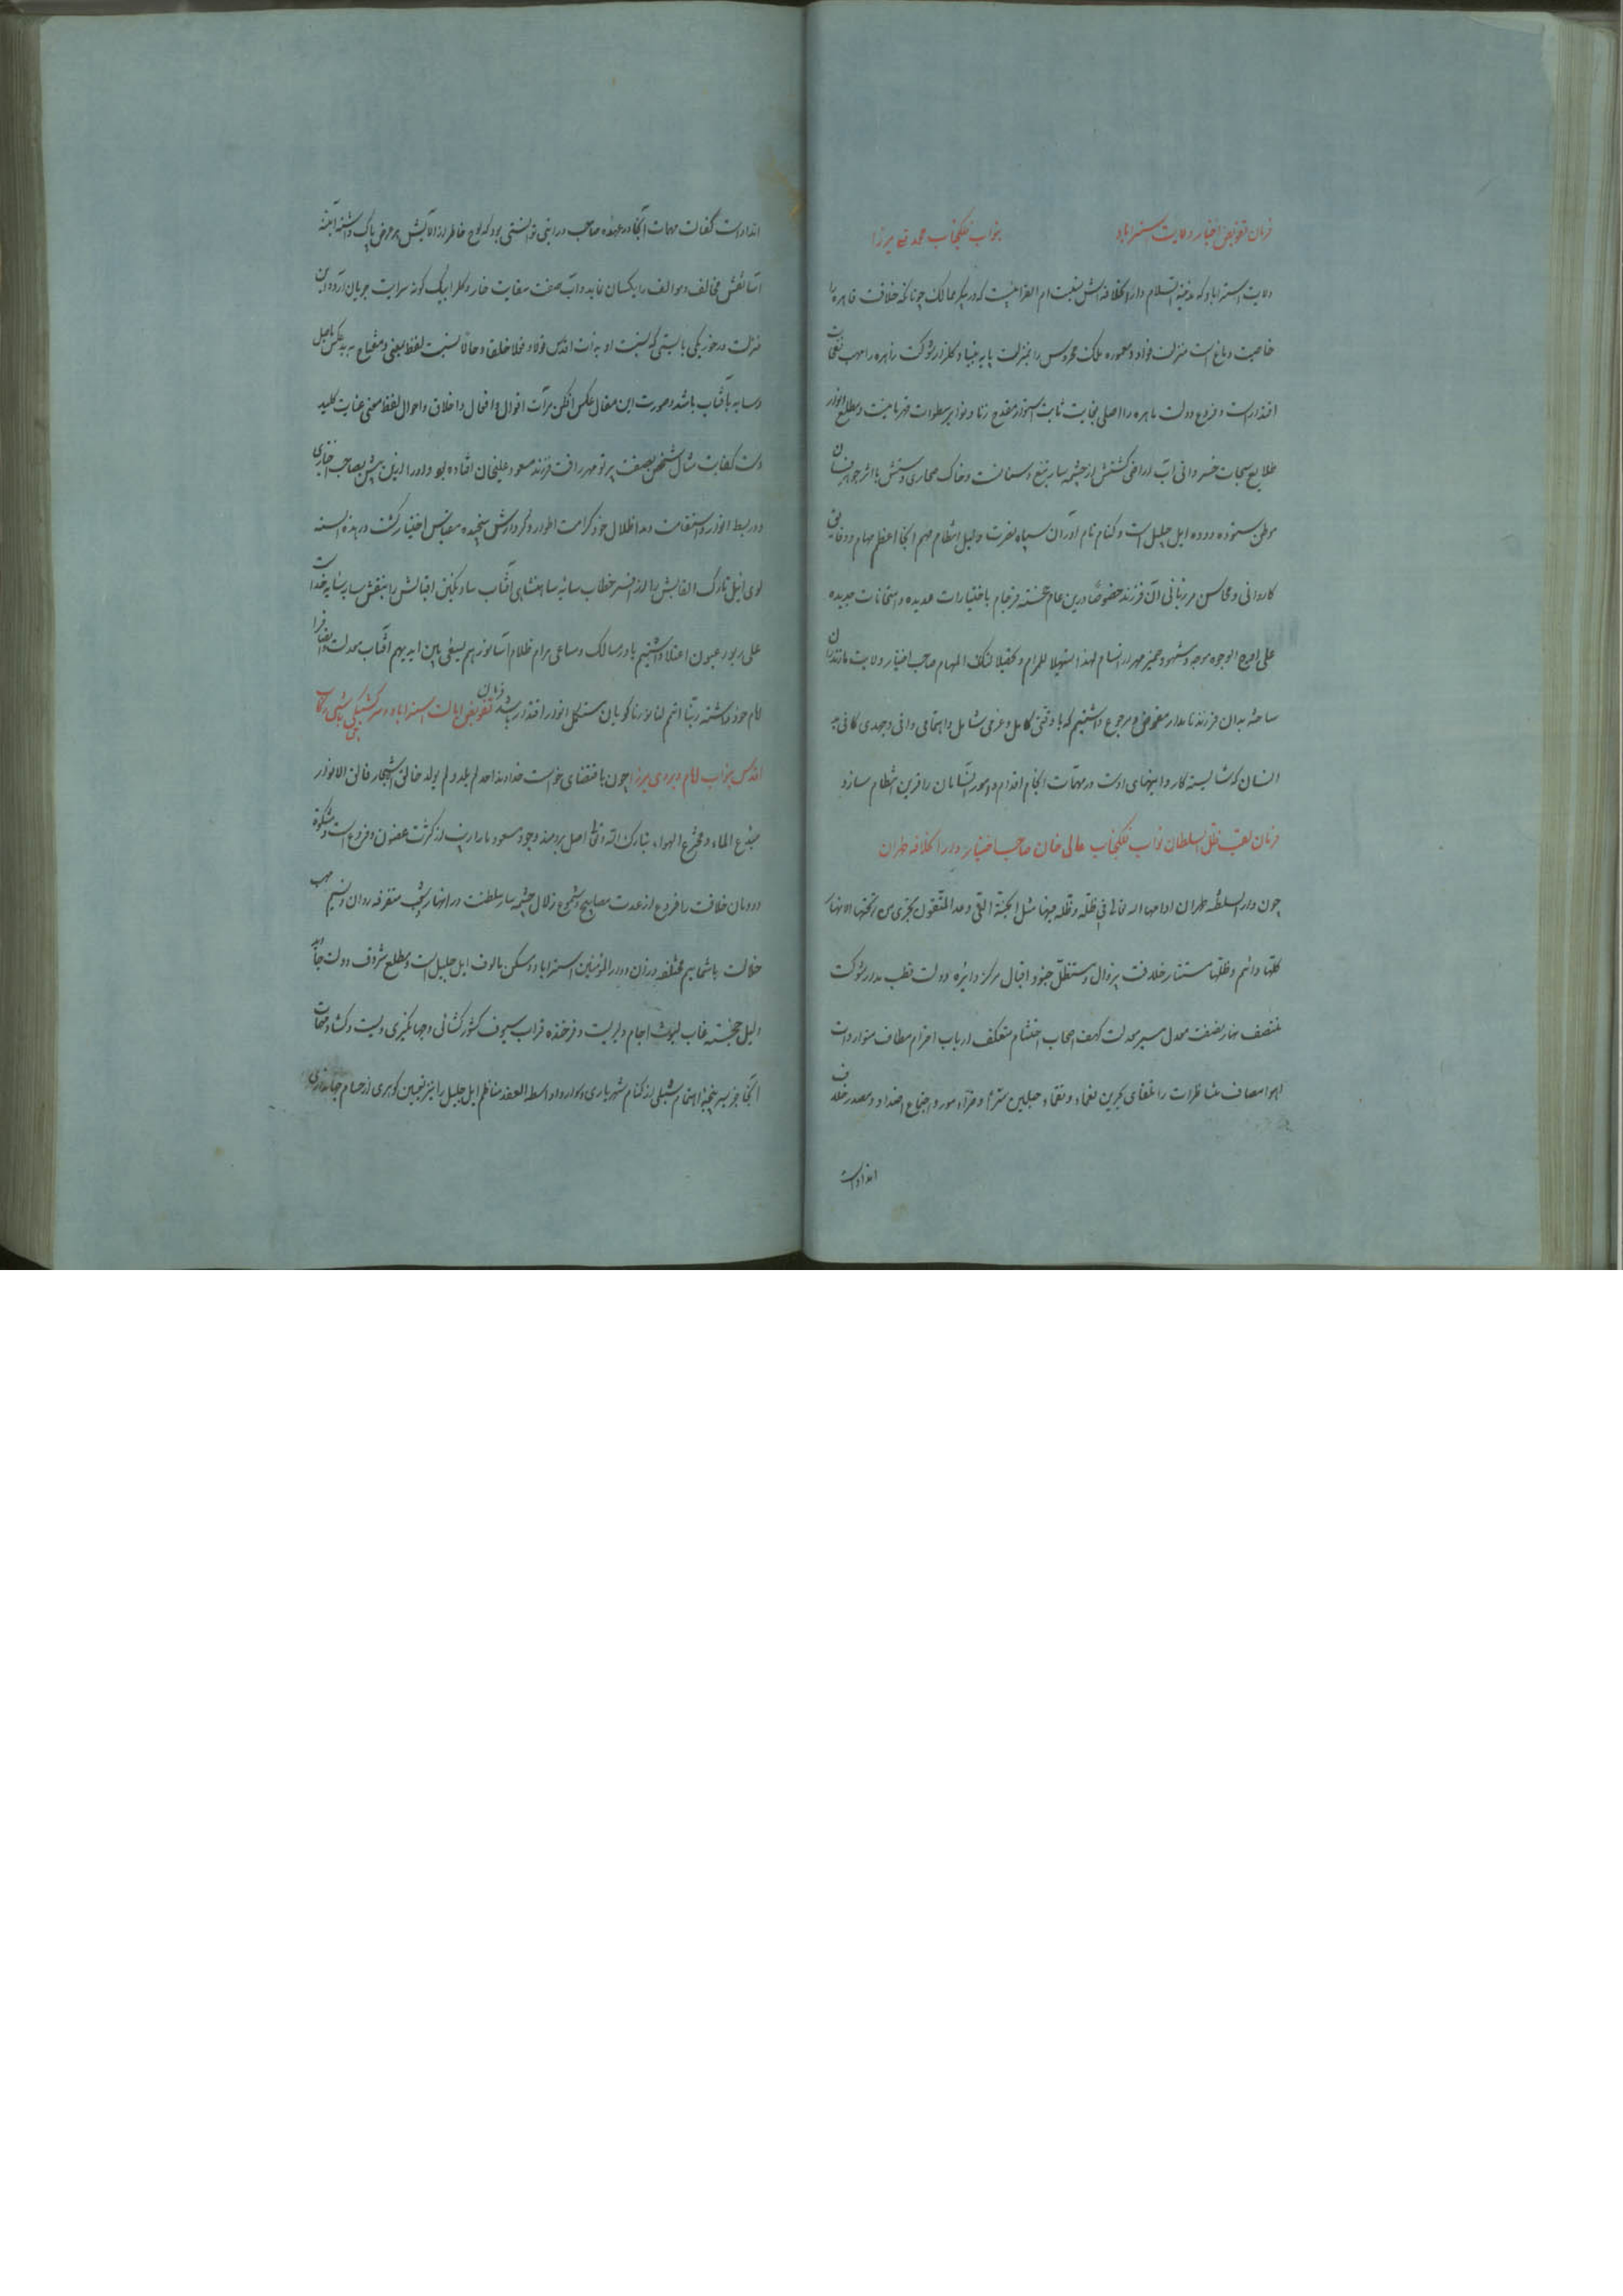 فرمان تفویض اختیار ولایت استرآباد بنواب فلکجناب محمد تقی میرزا
ولایت استرآباد که مدینة السلام دار الخلافه اش نسبت ام القرائیست که در پیکر ممالک چونانکه خلافت قاهره را
خاصیت دماغ است منزلت فواد و معموره ملک محروس را بمنزلت پایه بنیاد و گلزار شوکت زاهره را مهب نفحات
اقتدار است و فروع دولت باهره را اصلی بغایت ثابت استوار مقدح زناد نوایر سطوات قهرمانیست و مطلع انوار
طلایع سبحات خسروانی آب اراضی کشتش از چشمه سار تیغ و سنانست و خاک صحاری و دشتش با اثر جواهر انسان
موطن ستوده دوده ایل جلیل است و کنام نام آوران سپاه نصرت دلیل انتظام مهم آنجا اعظم مهام و وفای
کاردانی و محاسن مرزبانی آن فرزند خصوصا درین عام خجسته فرجام باختیارات عدیده و امتحانات جدیده
علی اوضح الوجوه موجه و مشهود ضمیر مهر ارتسام لهذا تسهیلا للمرام و تکفیلا لتلک المهام صاحب اختیار ولایت مازندران
ساخته بدان فرزند نامدار مفوض و مرجوع داشتیم که با وقتی کامل و عزمی شامل و اهتمامی وافی و جهدی کافی به
انسان که شایسته کاردانیهای اوست در مهمات انجام اقدام و امور آنسامان را قرین انتظام سازد
فرمان لقب ظل السلطان نواب فلکجناب عالی خان صاحب اختیار دار الخلافه طهران
چون دار السلطنه طهران ادامها الله تعالی فی ظله و ظله فیها مثل الجنة التی وعد المتقون تجری من تحتها الانهار
اکلها دائم و ظلها مستنار خلافت بیزوال و مستظل جنود اقبال مرکز دایره دولت قطب مدار شوکت
منتصف نهار نصفت معدل سیر معدلت کهف اصحاب احتشام معتکف ارباب احترام مطاف متواردات
اهوا مصاف متناظرات را تلقای بحرین نعماء و نقماء جبلین سراء و ضراء مورد اجتماع اضداد و مصدر خلاف
انداد است
انداد است کفالت مهمات آنجا در عهده صاحب درایتی توانستی بود که لوح خاطر از آلایش هر غرض پاک داشته آینه
آسا نقش مخالف و موالف را یکسان نماید و آب صفت سقایت خار و گل را بیک گونه سرایت جریان آرد و این
منزلت در خور یکی بایستی که نسبت او بذات اقدس قولا و فعلا خلقا و خالقا نسبت لفظ بمعنی و مفتاح بید عکس باصل
و سایه بآفتاب باشد و صورت این مقال عکس افکن مرآت اقوال و افعال و اخلاق و احوال لفظ معنی عنایت کلید
دست کفایت مثال شخص نصفت پرتو مهر رافت فرزند مسعود علیخان افتاده بود و او را ازین پیش بصاحب اختیاری
و در بسط انوار استقامت و مد اظلال خود کرامت اطوار و کردارش سنجیده مقیاس اختیار گشت در هذه السنه
لوی ئیل تارک القابش را از افسر خطاب سایه سا هنشاهی آفتاب سا و نگین اقبالش را بنقش سایه سایه خداست
علی ربو و عیون اعتلا داشتیم تا در مسالک و مساعی مرام ظلام آسا نورهم یسعی بین ایدیهم آفتاب معدلت اقتضا فرا
امام خود داشته ربنا اتمم لنا نورنا گویان مستکمل انوار اقتدار باشد فرمان تفویض ایالت استرآباد و سرکشیکچی باشی رکاب
اقدس بنواب امام ویردی میرزا چون باقتضای خواست خداوند احد لم یلد و لم یولد خالق الاشجار فالق الانوار
مبدع الماء و مخترع الهواء تبارک الله تعالی اصل برومند وجود مسعود ما را زیب از کثرت غصون و فروع است و مشکوة
دودمان خلافت را فروغ از عدت مصابیح و شموع زلال چشمه سار سلطنت در انهار شعب متفرقه روان و نسیم مهب
جلالت باشمایم مختلفه وزان و دار المؤمنین استرآباد و مسکن مالوف ایل جلیل است و مطلع شروق دولت جاوید
دلیل خجسته غاب لیوث آجام دلیریست و فرخنده قراب سیوف کشورگشائی و جهانگیری و بست و گشاد مهمات
آنجا جز بسرپنجه اهتمام شبلی از کنام شهریاری دشوار و واسطة العقد مناظم ایل جلیل را نیز تعیین گوهری از حسام جهانداری